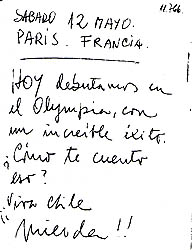 11.766
SABADO 12 MAYO.
PARÍS. FRANCIA.
¡HOY debutamos en
el Olympia, con
un increíble éxito.
¿Cómo te cuento
eso?
¡¡Viva Chile
mierda!!